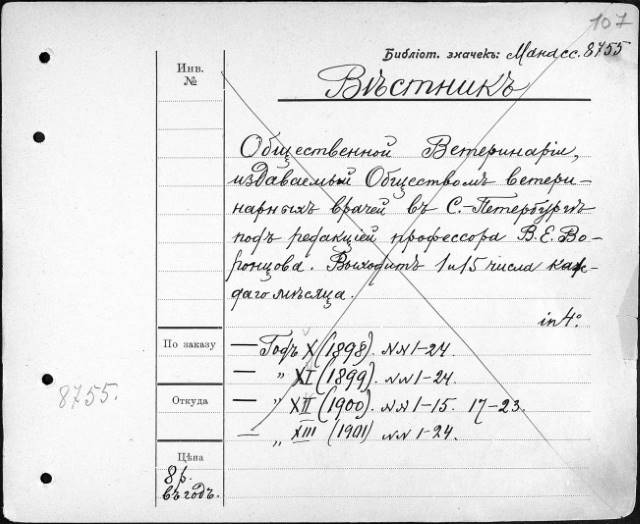 107
Библіот. значекъ: Манасс. 8755
Инв.
№
Вѣстникъ
Общественной Ветеринаріи,
издаваемый Обществомъ ветери-
нарныхъ врачей въ С.-Петербургѣ
подъ редакціей профессора В.Е. Во-
ронцова. Выходитъ 1 и 15 числа каж-
даго мѣсяца.
in 4º
По заказу
— Годъ X (1898). NN 1-24.
— „ XI (1899). NN 1-24.
8755.
Откуда
— „ XII (1900). NN 1-15. 17-23.
— „ XIII (1901) NN 1-24.
Цѣна
8 р.
въ годъ.